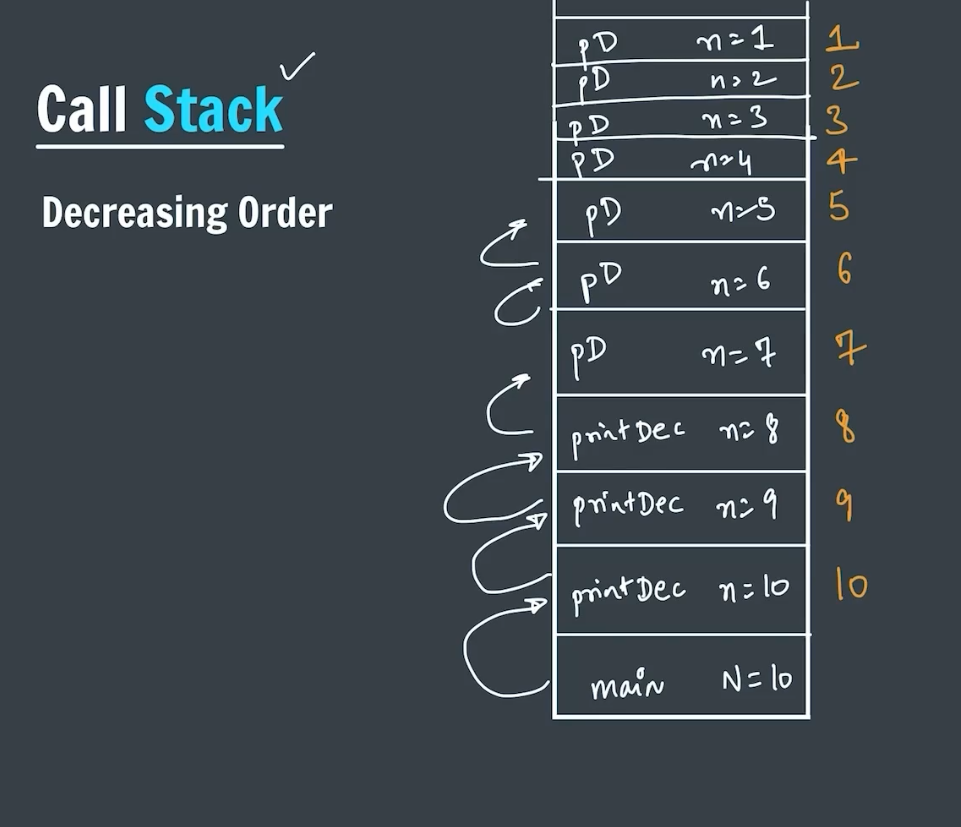 Call Stack
Decreasing Order
pD n=1 1
pD n=2 2
pD n=3 3
PD n=4 4
pD n=5 5
pD n=6 6
pD n=7 7
printDec n=8 8
printDec n=9 9
printDec n=10 10
main N=10